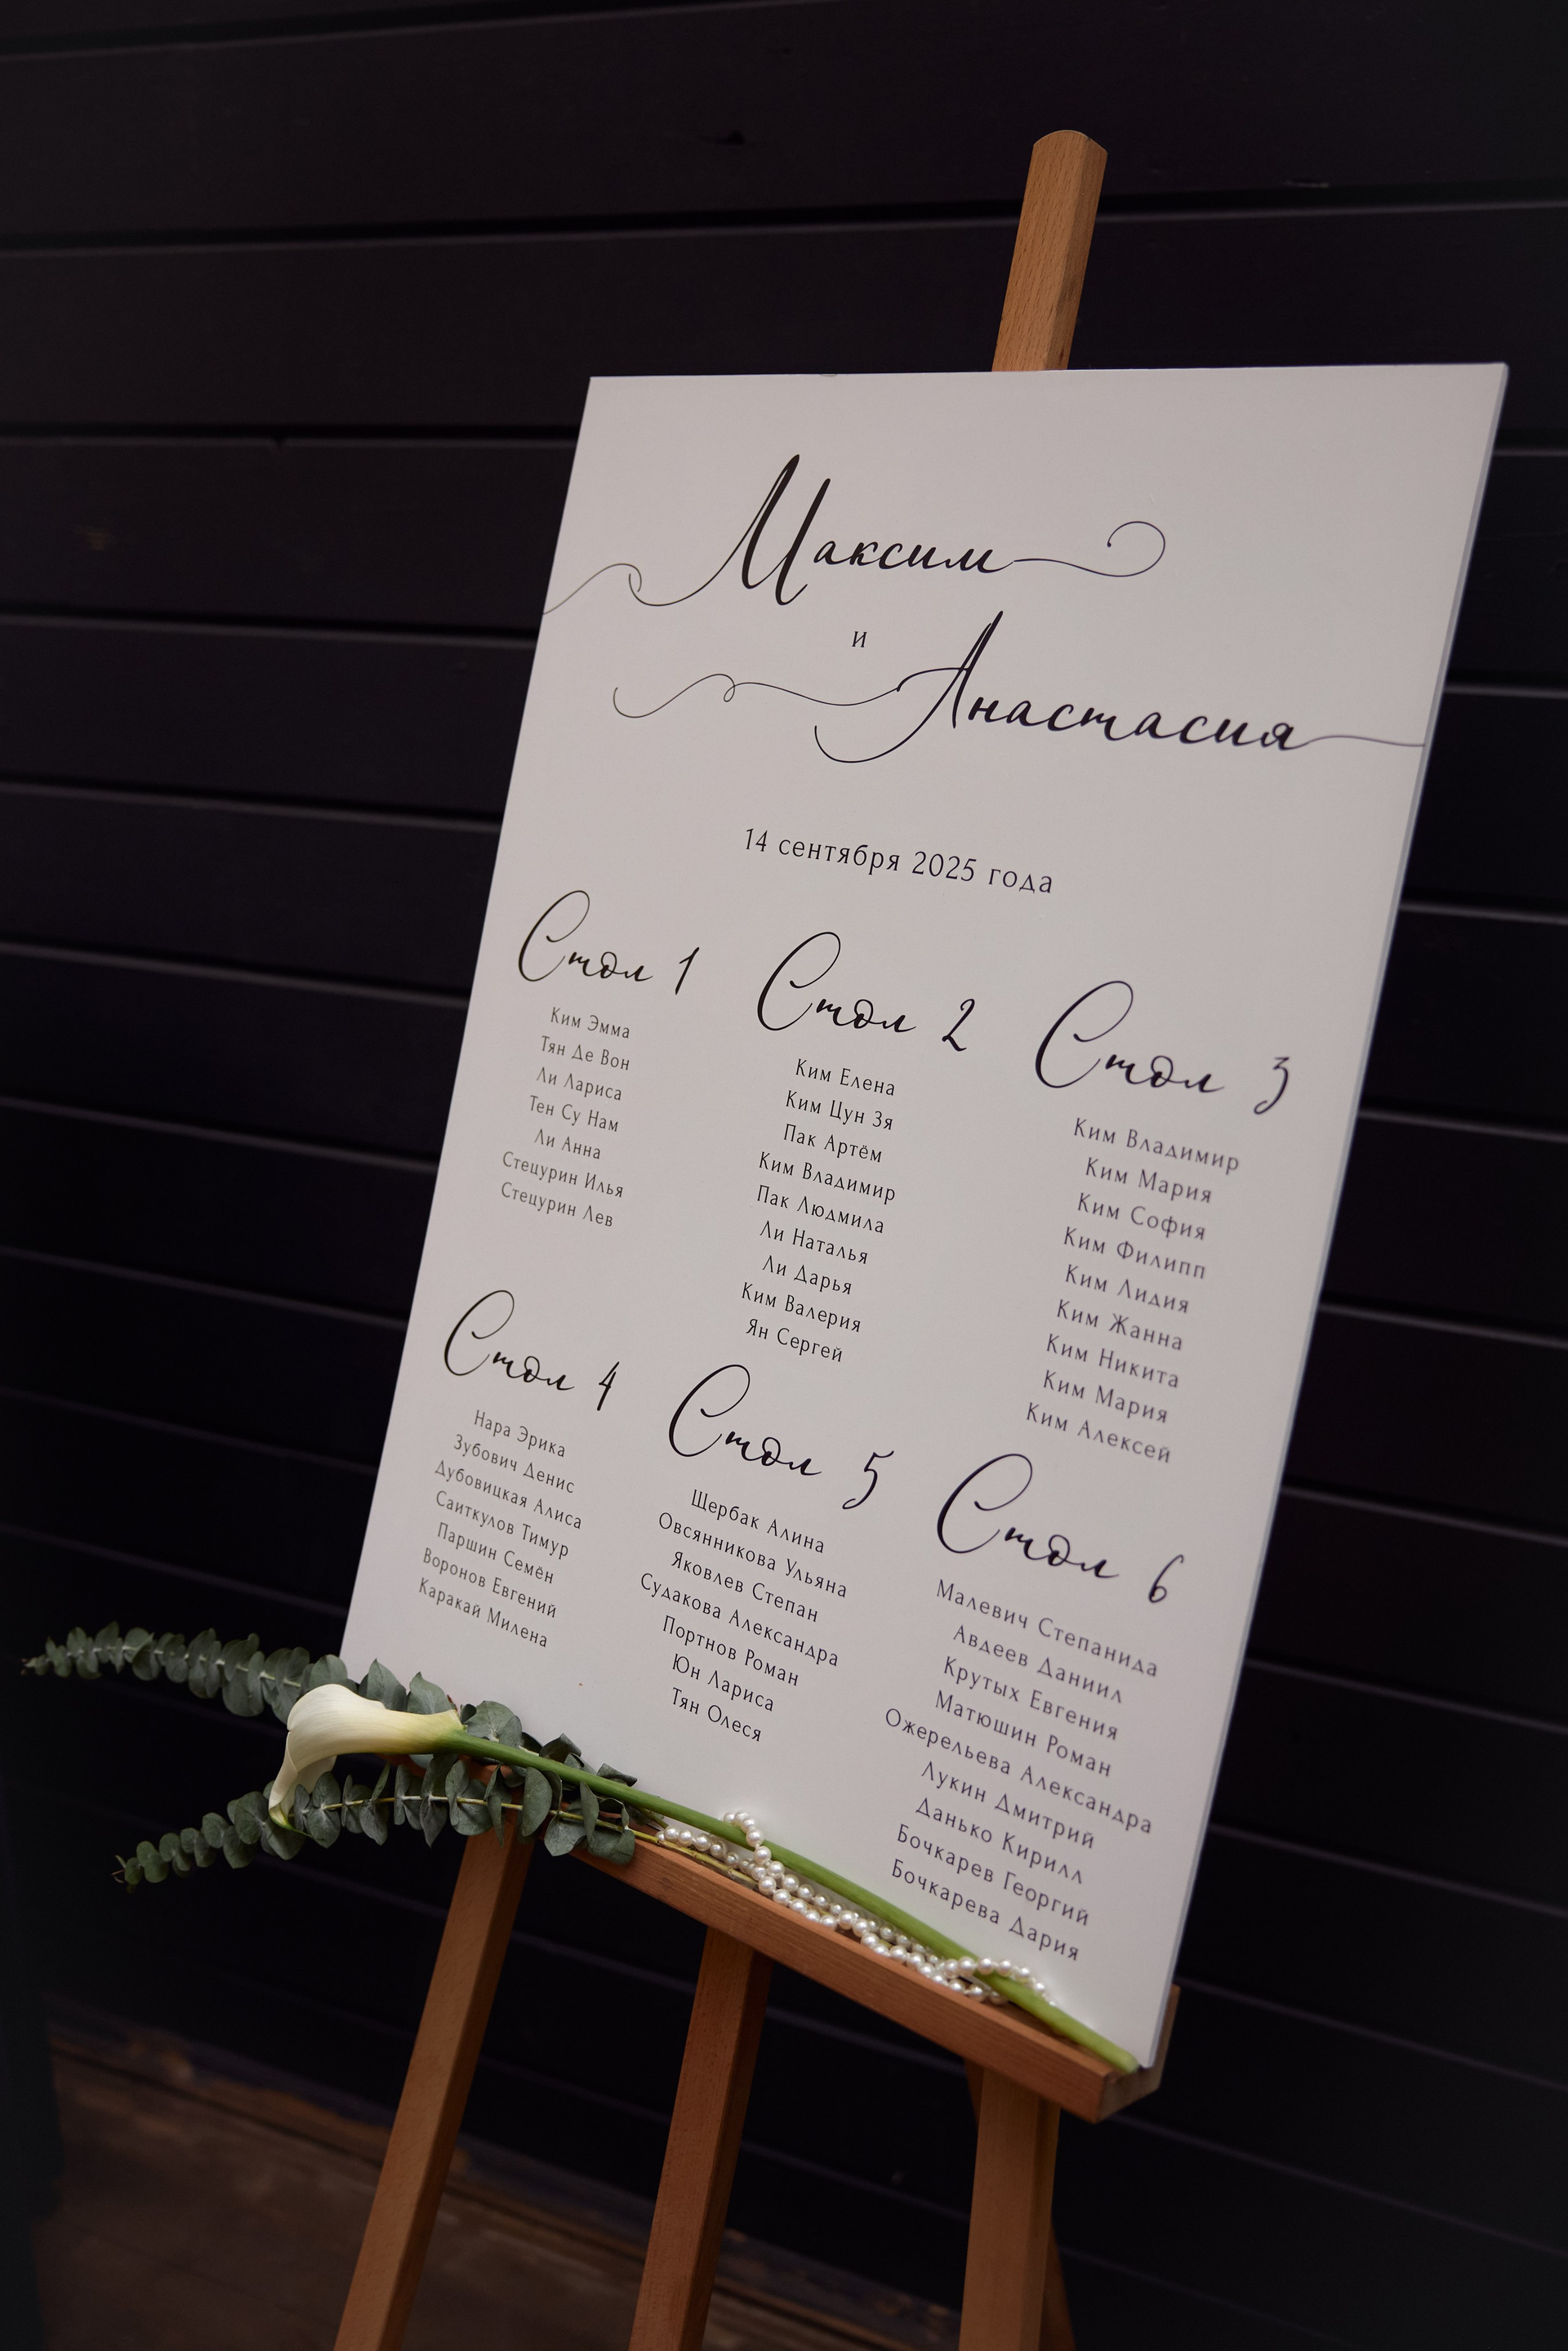 Максим
и
Анастасия
14 сентября 2025 года
Стол 1
Ким Эмма
Тян Де Вон
Ли Лариса
Тен Су Нам
Ли Анна
Стецурин Илья
Стецурин Лев
Стол 2
Ким Елена
Ким Цун Зя
Пак Артём
Ким Владимир
Пак Людмила
Ли Наталья
Ли Дарья
Ким Валерия
Ян Сергей
Стол 3
Ким Владимир
Ким Мария
Ким София
Ким Филипп
Ким Лидия
Ким Жанна
Ким Никита
Ким Мария
Ким Алексей
Стол 4
Нара Эрика
Зубович Денис
Дубовицкая Алиса
Саиткулов Тимур
Паршин Семён
Воронов Евгений
Каракай Милена
Стол 5
Щербак Алина
Овсянникова Ульяна
Яковлев Степан
Судакова Александра
Портнов Роман
Юн Лариса
Тян Олеся
Стол 6
Малевич Степанида
Авдеев Даниил
Крутых Евгения
Матюшин Роман
Ожерельева Александра
Лукин Дмитрий
Данько Кирилл
Бочкарев Георгий
Бочкарева Дария